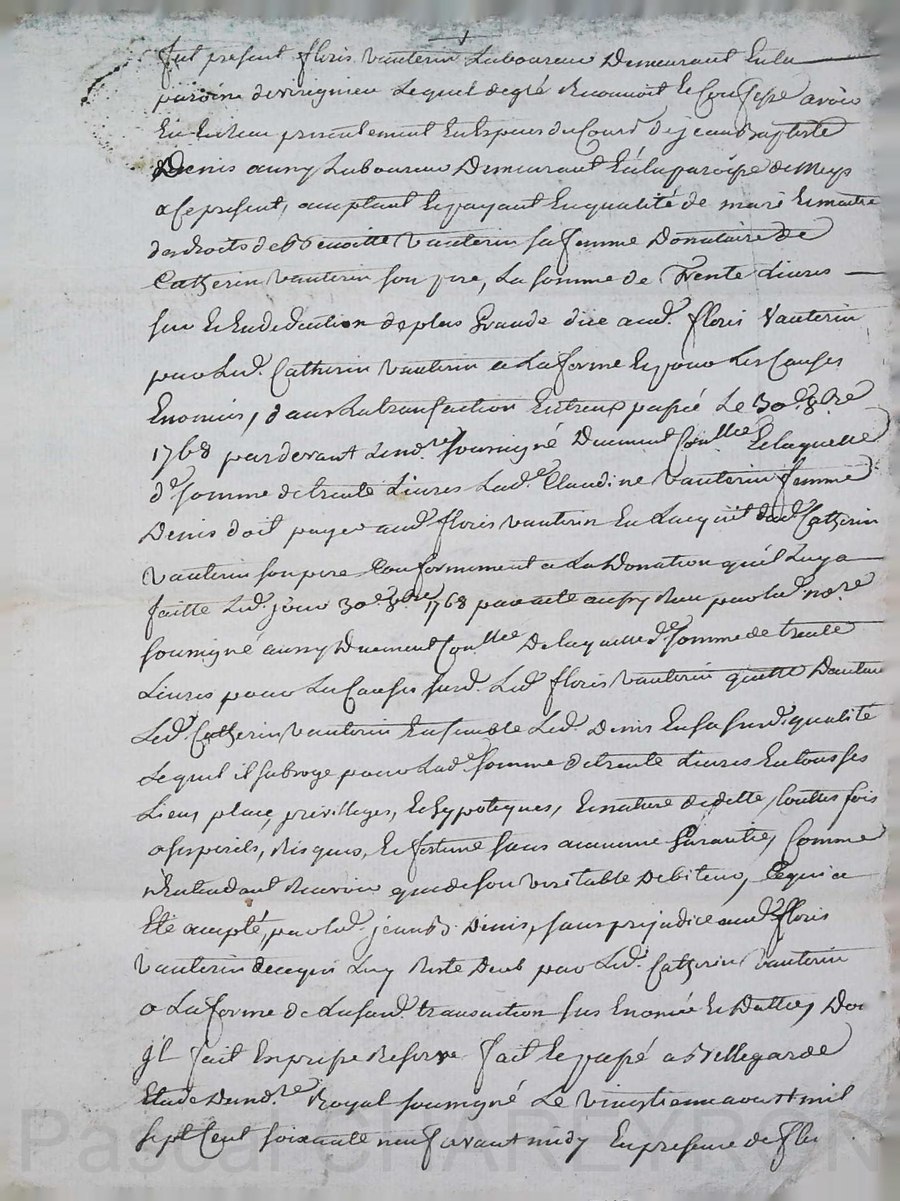 fut present floris vauterin Laboureur Demeurant En la
paroisse de virignieu Lequel de gré Reconnoit Et Confesse avoir
Eu Et Receu presentement En Especes du Cours De jean Baptiste
Denis aussy Laboureur Demeurant En la paroisse de Meys
a ce present, acceptant Et payant En qualité de mari Et maitre
des droits de Benoitte Vauterin sa femme Donataire de
Catherin Vauterin son pere, La somme de Trente Livres
sur Et En deduction de plus Grande düe aud. floris Vauterin
par Led. Catherin Vauterin a La forme Et pour Les Causes
Enoncées, dans La transaction Entreux passée Le 30e 8bre
1768 par devant Le no.re soussigné Duement Conllee De laquelle
de somme de trente Livres Lad.e Claudine Vauterin femme
Denis doit payer aud. floris vauterin En L'acquit dud. Catherin
Vauterin son pere Conformement a La Donation qu'il Luy a
faitte Led. jour 30e 8bre 1768 par acte aussy Receu par Led. no.re
soussigné aussy Duement Conllee De laquelle de somme de trente
Livres pour Les Causes susd. Led. floris Vauterin quitte D'autant
Led. Catherin Vauterin Ensemble Led. Denis En sa susd. qualité
Lequel il subroge pour Lad.e somme de trente Livres En tous ses
Lieux place, privilleges, Et hypoteques, Et nature de dette, toutes fois
a ses perils, Risques, Et fortune sans aucunne Garantie, Comme
n'Entendant Recevoir que de son veritable Debiteur, Ce qui a
Eté accepté, par Led. jean B. Denis, sans prejudice aud. floris
Vauterin de ce qui Luy Reste Deub par Led. Catherin Vauterin
a La forme de La susd. transaction sus Enoncée Et Dattée, Dont
jl fait Expresse Reserve fait Et passé a Bellegarde
Etude Du no.re Royal soussigné Le vingtieme aoust mil
sept Cent soixante neuf avant midy En presence de fleu
Pascal CHAREYRON